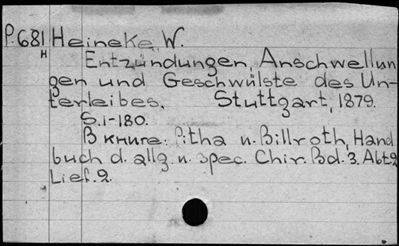 P.681 Heineke, W.
H Entzündungen, Anschwellun
gen und Geschwülste des Un-
terleibes. Stuttgart, 1879.
S.1-180.
В книге: Pitha u. Billroth, Hand
buch d. allg. u. spec. Chir. Bd. 3. Abt. 2
Lief. 2.